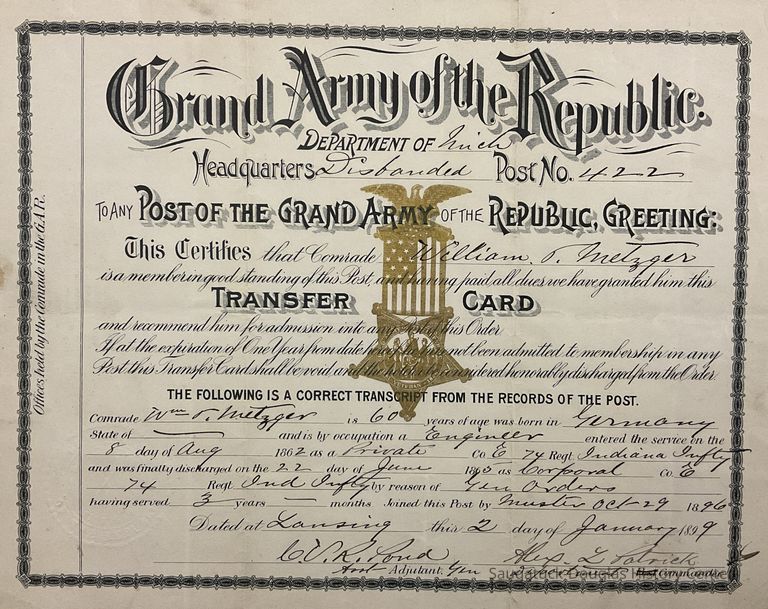 Grand Army of the Republic.
DEPARTMENT OF Mich
Headquarters Disbanded Post No. 422
TO ANY POST OF THE GRAND ARMY OF THE REPUBLIC, GREETING:
This Certifies that Comrade William T. Metzger
is a member in good standing of this Post, and having paid all dues we have granted him this
TRANSFER CARD
and recommend him for admission into any Post of this Order.
If at the expiration of One Year from date hereof he has not been admitted to membership in any
Post this Transfer Card shall be void and the holder be considered honorably discharged from the Order.
THE FOLLOWING IS A CORRECT TRANSCRIPT FROM THE RECORDS OF THE POST.
Comrade Wm T. Metzger is 60 years of age was born in Germany
State of and is by occupation a Engineer entered the service on the
8 day of Aug 1862 as a Private Co E 74 Regt Indiana Infty
and was finally discharged on the 22 day of June 1865 as Corporal Co E
74 Regt Ind Infty by reason of Gen Orders
having served 3 years — months Joined this Post by Muster Oct 29 1896
Dated at Lansing this 2 day of January 1899
C.V.R. Pond Alex L Patrick
Asst Adjutant Gen Commander
Offices held by the Comrade in the G.A.R.
Saugatuck-Douglas